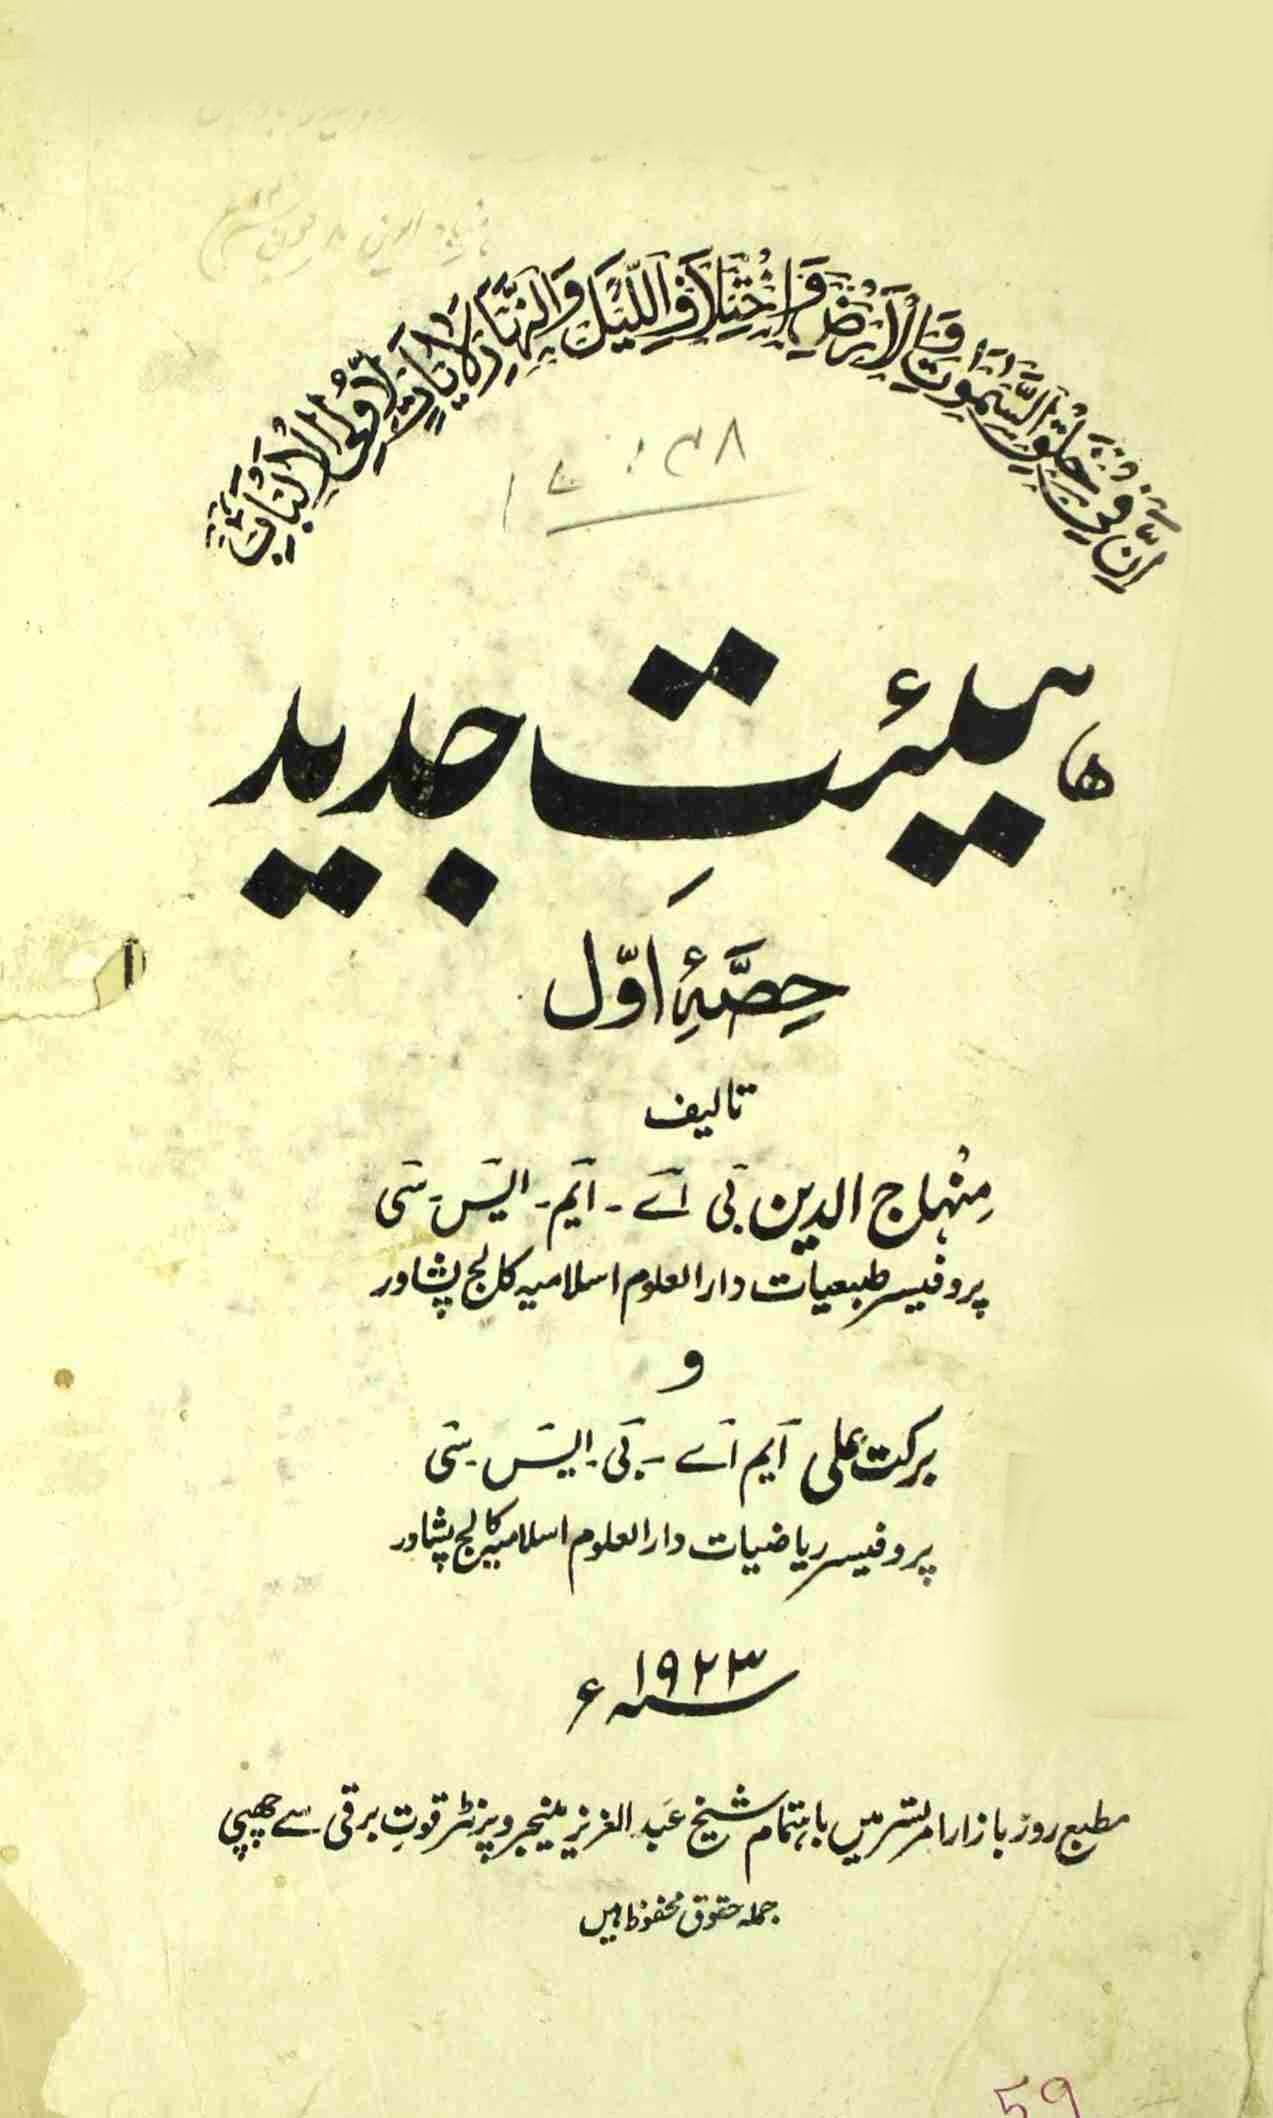 اِنَّ فِیْ خَلْقِ السَّمٰوٰتِ وَالْاَرْضِ وَاخْتِلَافِ اللَّیْلِ وَالنَّهَارِ لَاٰیَاتٍ لِّاُولِی الْاَلْبَابِ
۱۷۰۳۸
ہیئتِ جدید
حِصَّۂِ اوّل
تالیف
مِنْہاج الدین بی اَے - ایم - ایس - سی
پروفیسر طبیعیات دارالعلوم اسلامیہ کالج پشاور
و
برکت علی ایم اَے - بی - ایس - سی
پروفیسر ریاضیات دارالعلوم اسلامیہ کالج پشاور
سنہ ۱۹۲۳ء
مطبع روز بازار امرتسر میں باہتمام شیخ عبد العزیز مینیجر و پرنٹر قوتِ برقی سے چھپی
جملہ حقوق محفوظ ہیں
59